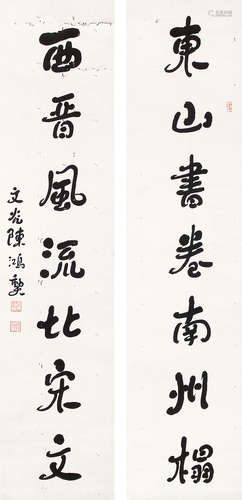 東山書卷南州榻
西晉風流北宋文
陳鴻